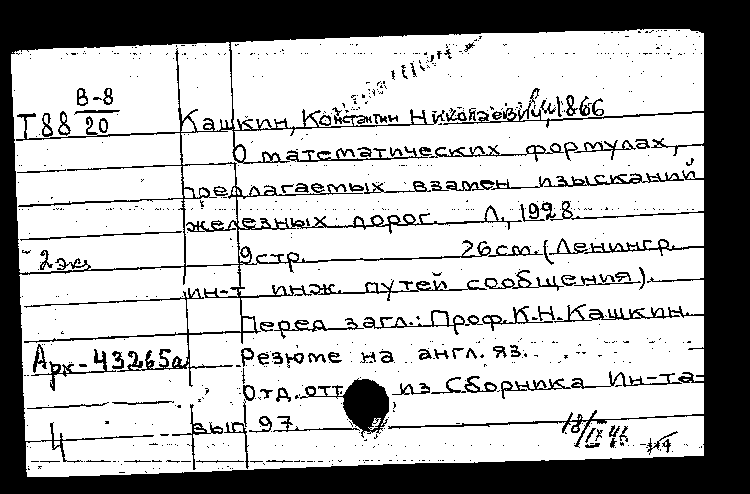 В-8
Т88 20
Кашкин, Константин Николаевич, 1866
О математических формулах,
предлагаемых взамен изысканий
железных дорог. Л., 1928.
2 экз.
9 стр. 26 см. (Ленингр.
ин-т инж. путей сообщения).
Перед загл.: Проф. К.Н. Кашкин.
Арх-43265а
Резюме на англ. яз.
Отд. отт. из Сборника Ин-та-
вып 97.
4
18/IX 46